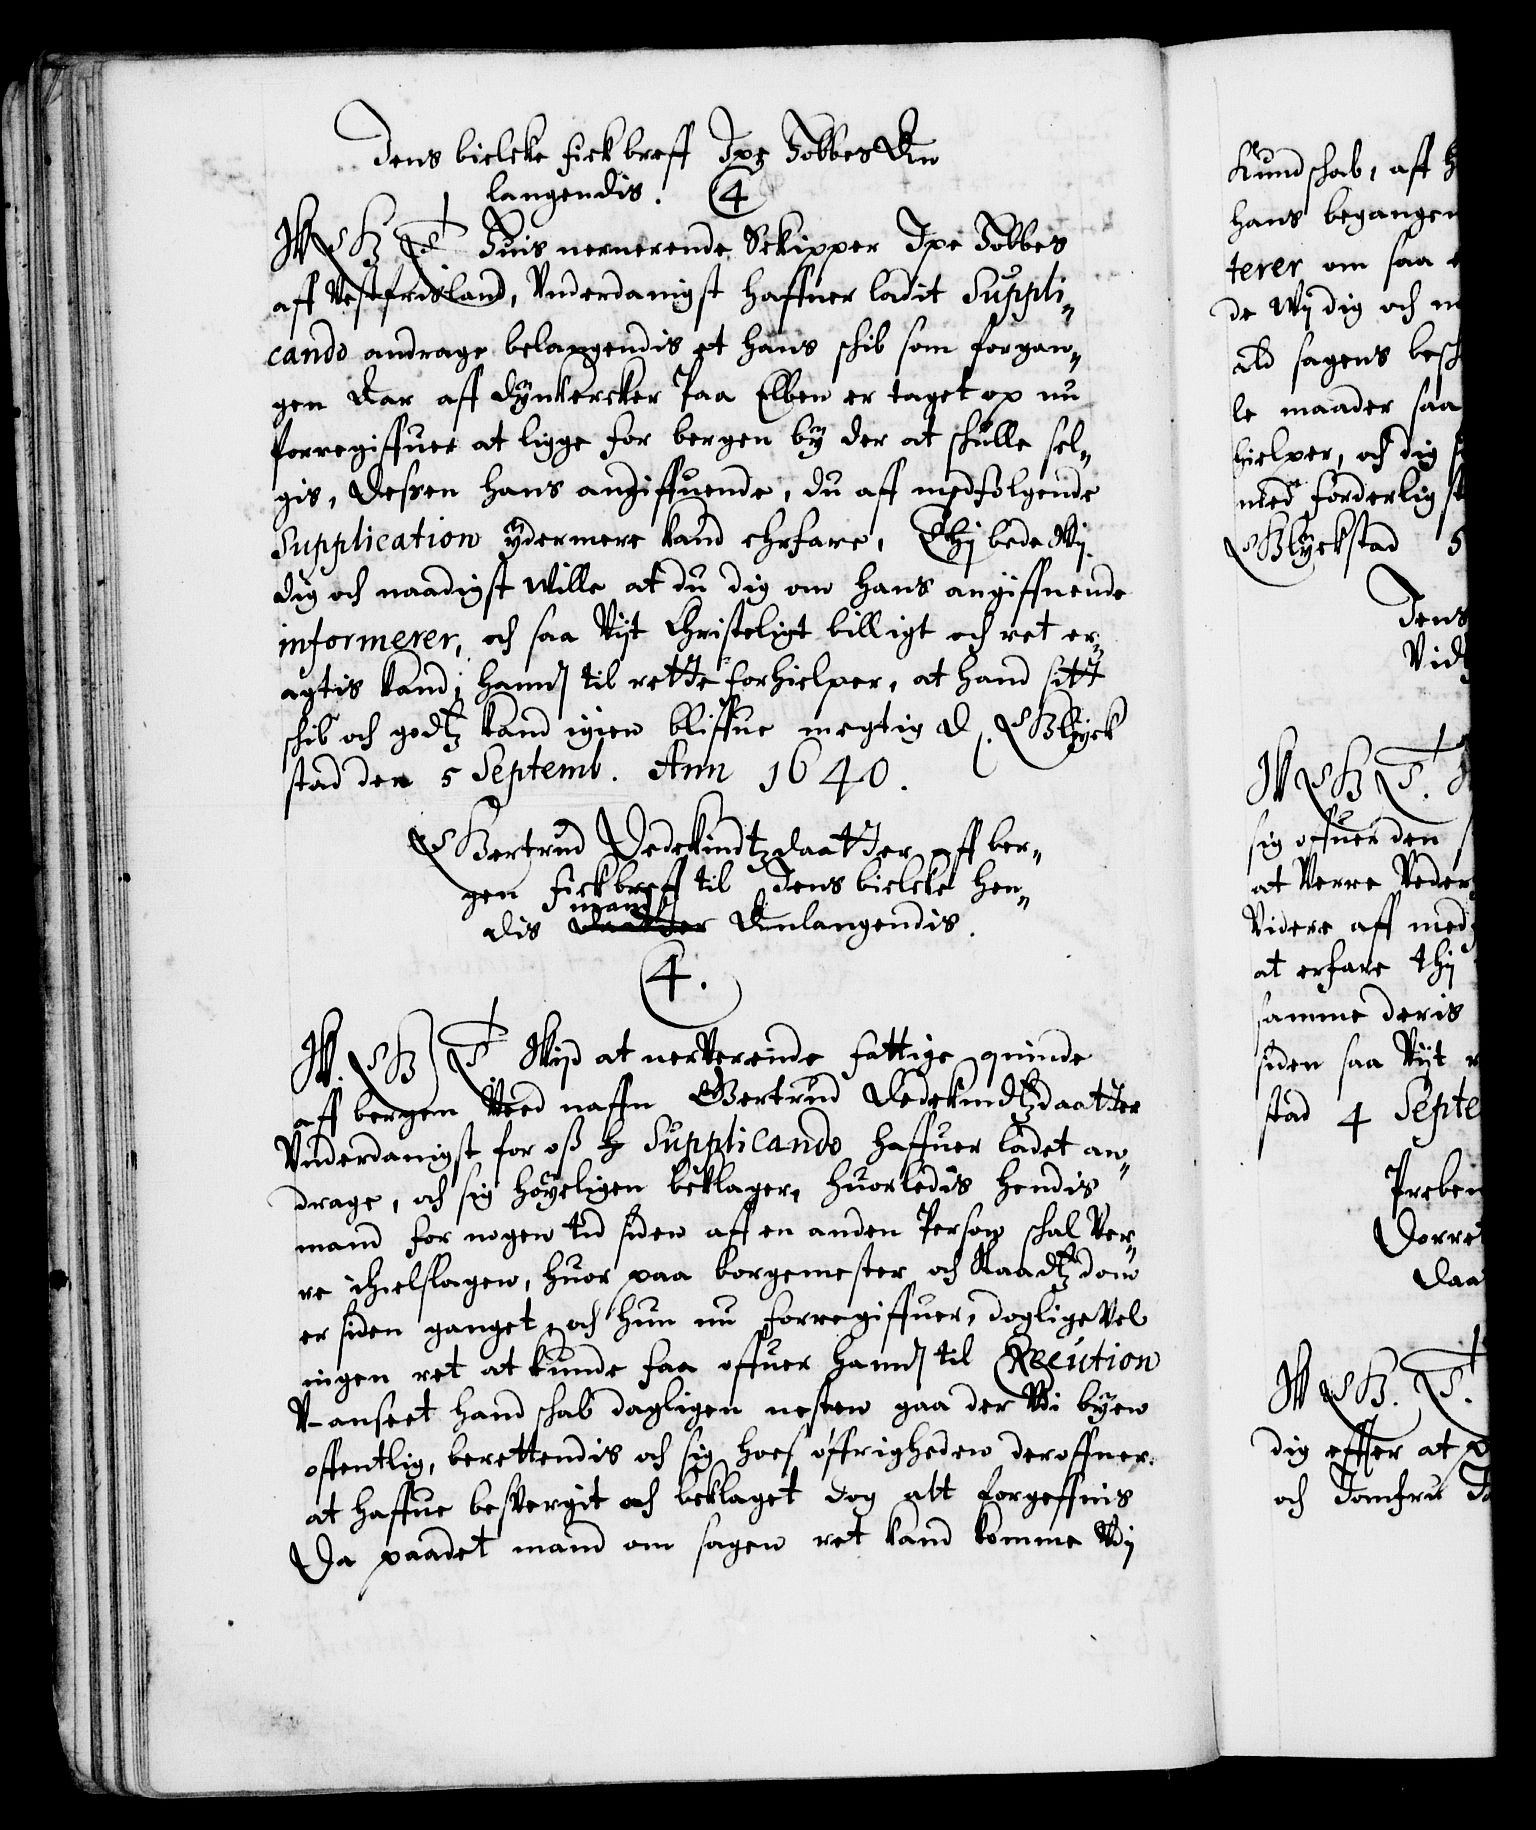 Jens bielcke fick breff Ipe Tobbes An
langendis. 4
W G T Huis nerverende Skipper Ipe Tobbes
aff Vestfrisland, Vnderdanigst haffuer ladit Suppli„
cando andrage belangendis et hans schib som forgan„
gen Aar aff dÿnkercker Paa Elben er taget op nu
forregiffues at ligge for bergen bÿ der at schulle sel„
gis, Dessen hans angiffuende, du aff medfølgende
Supplication ÿdermere kand ehrfare, Thj bede Wij
dig och naadigst Wille at du dig om hans angiffuende
informerer, och saa Vijt Christeligt billigt och ret er„
agtis kand, hannd til rette forhielper, at hand sitt
schib och godtz kand igien bliffue megtig A. Glÿck
stad den 5 Septemb. Ann 1640.
Gertrud Vedekindtzdaatter aff ber„
gen fick breff til Jens bielcke hen„
dis daatter mand Anlangendis.
4.
W. G T Wijd at nerverende fattige quinde
aff bergen Veed naffn Gertrud Vedekindtzdaatter
Vnderdanigst for oss Supplicando haffuer ladet an„
drage, och sig høyeligen beklager, huorledis hendis
mand for nogen tid siden aff en anden Person schal Ver„
re ihielslagen, huor paa borgemester och Raadtz dom
er siden ganget, och hun nu forregiffuer, doglige vel
ingen ret at kunde faa offuer hannd til Execution
V-anseet hand schab dagligen nesten gaa der Vdi bÿen
offentlig, berettendis och sig hoes øffrigheden deroffuer
at haffue besvergit och beklaget dog alt forgeffuis
Da paadet mand om sagen ret kand komme Vdj
Kundschab, aff
hans begangen
terer om saa
de Wij dig och
Ald sagens
le maader saa
hielper, och dig
med forderlig
Glÿckstad 5
Jens
W G T.
sig offuer den
at Verre
Videre aff med
at erfare thj
samme deris
siden saa Vijt
stad 4 Septe
Preben
Daa
W G. T.
dig effter at
och Jomfru